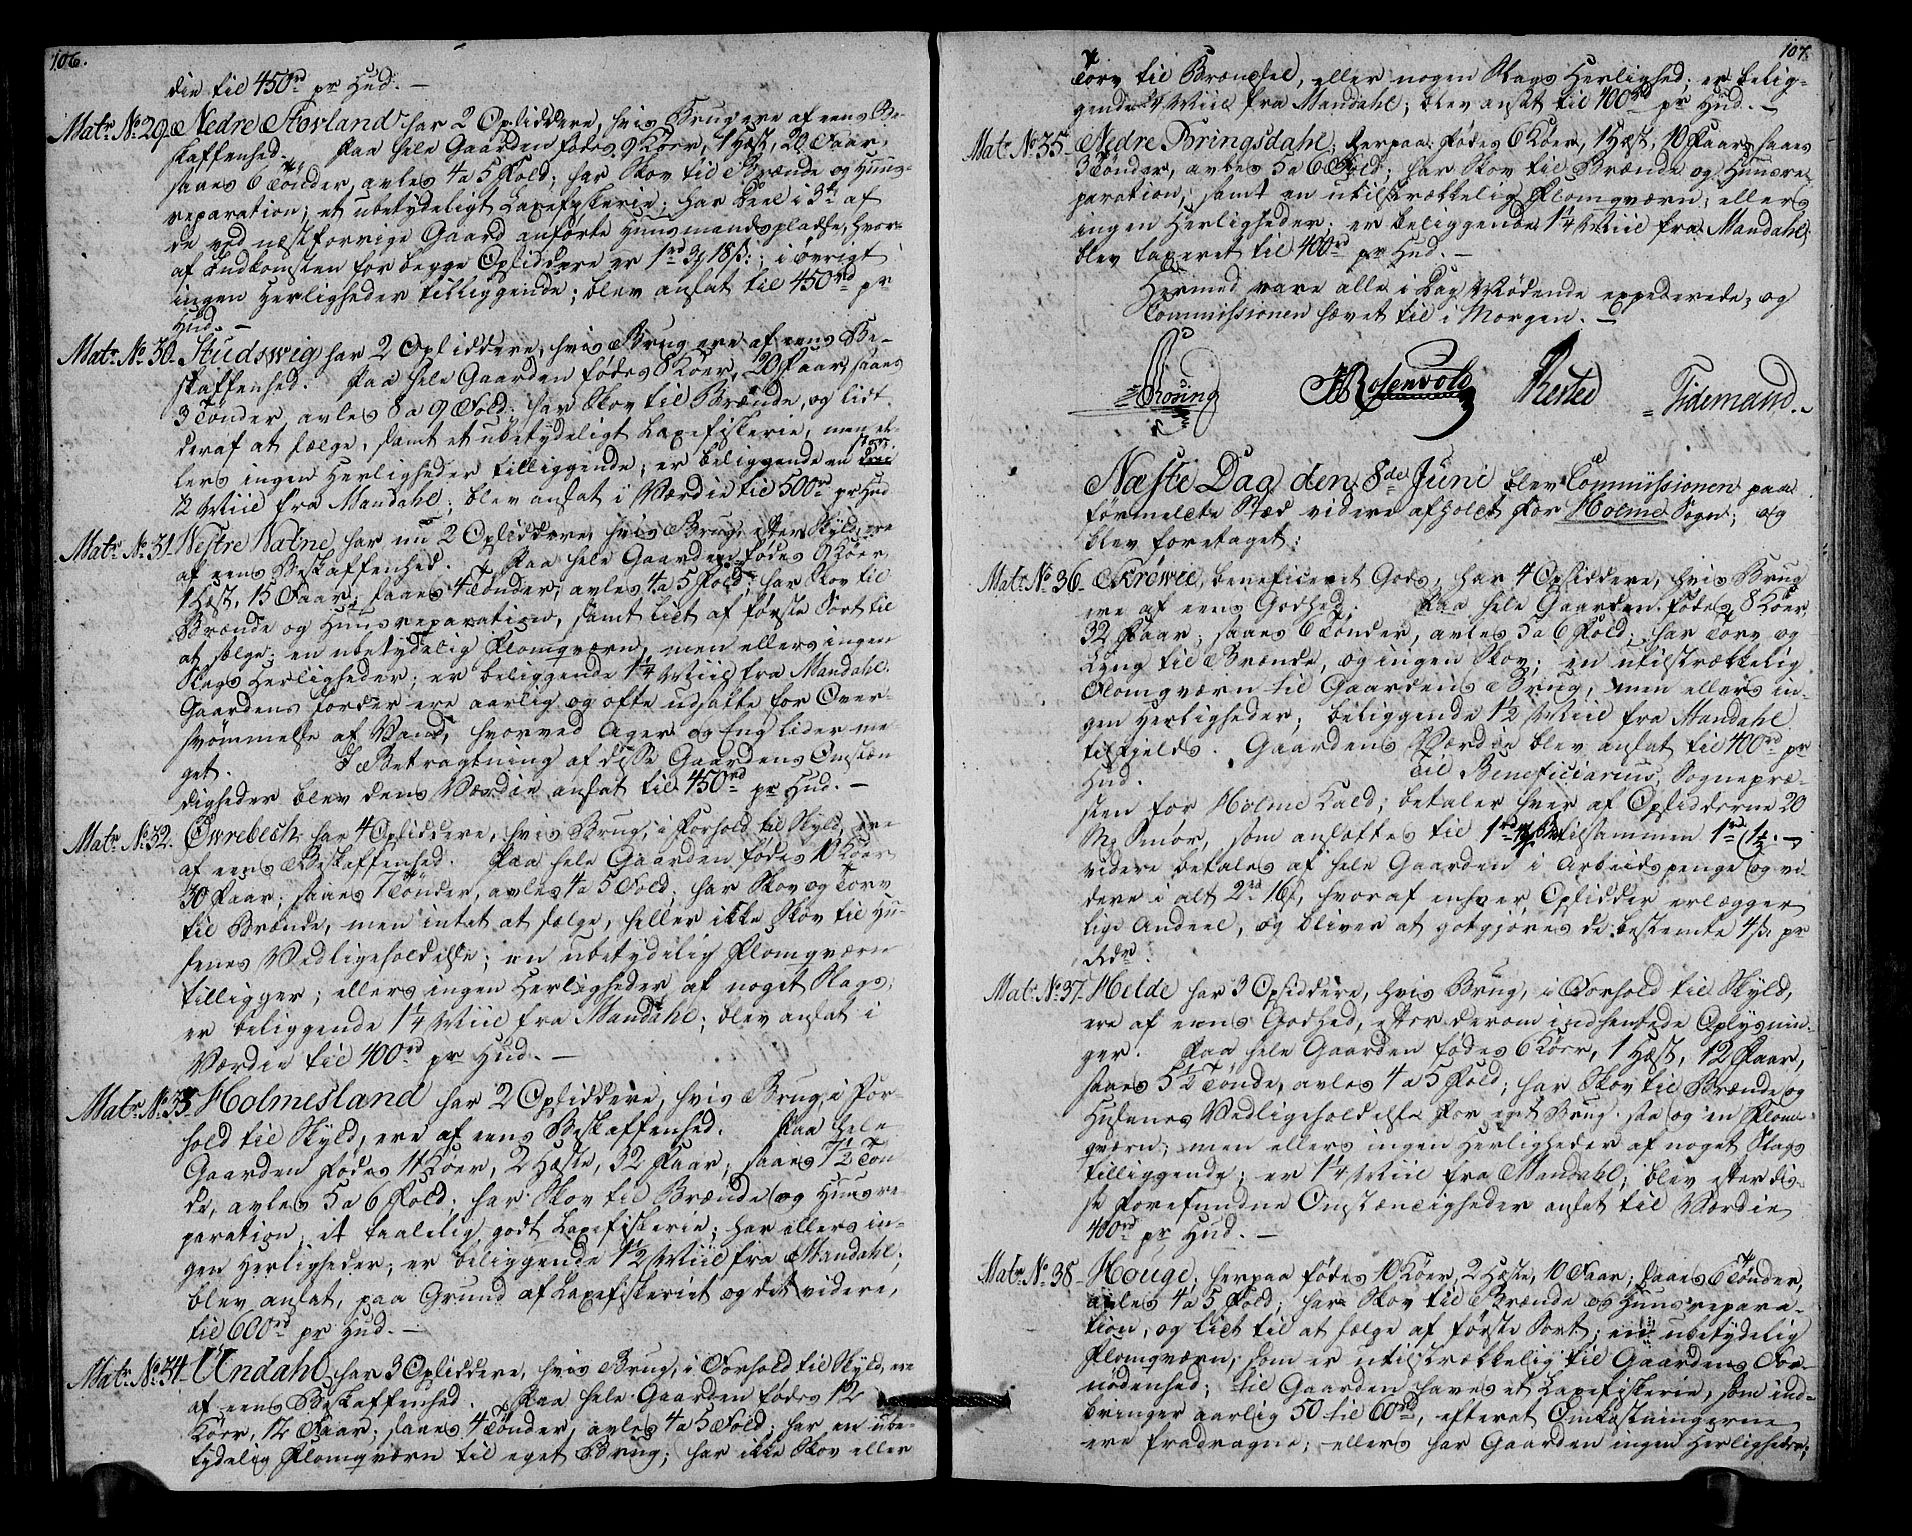 106.
die til 450rd pr Hud. —
Matr. No. 29. Nedre Skovland har 2 Opsiddere, hvis Brug ere af eens Be-
skaffenhed. Paa hele Gaarden fødes 9 Køer, 1 Hest, 20 Faar,
saaes 6 Tønder, avles 4 a 5 Fold; har Skov til Brænde og Huus-
reparation; et ubetydeligt Laxefiskerie; har Deel i 3de af
de ved næstforrige Gaard anførte Huusmandspladse, hvor-
af Indkomsten for begge Opsiddere er 1rd 3 18 s.; i øvrigt
ingen Herligheder tilliggende; blev ansat til 450rd pr
Hud. —
Matr. No. 30. Studswig har 2 Opsiddere, hvis Brug ere af eens Be-
skaffenhed. Paa hele Gaarden fødes 8 Køer, 20 Faar, saaes
3 Tønder avles 8 a 9 Fold; har Skov til Brænde, og lidt
deraf at sælge, samt et ubetydeligt Laxefiskerie, men el-
lers ingen Herligheder tilliggende; er beliggende en stor
½ Miil fra Mandahl; blev ansat i Værdie til 500rd pr Hud
Matr. No. 31. Westre Natne har nu 2 Opsiddere, hvis Brug, efter Skyld, ere
af eens Beskaffenhed. Paa hele Gaarden fødes 9 Køer,
1 Hest, 15 Faar; saaes 4 Tønder, avles 4 a 5 Fold; har Skov til
Brænde og Huusreparation, samt lidt af første Sort til
at sælge; en ubetydelig Flomqværn, men ellers ingen
Slags Herligheder; er beliggende 1¼ Miil fra Mandahl.
Gaardens Jorder ere aarlig og ofte udsatte for Over-
svømmelse af Vand, hvorved Ager og Eng lider me-
get. I Betragtning af disse Gaardens Omstæn-
digheder blev dens Værdie ansat til 450rd pr Hud. —
Matr. No. 32. Øwrebech har 4 Opsiddere, hvis Brug, i Forhold til Skyld, ere
af eens Beskaffenhed. Paa hele Gaarden fødes 10 Køer
30 Faar; saaes 7 Tønder, avles 4 a 5 Fold; har Skov og Torv
til Brænde, men intet at sælge, heller ikke Skov til Hu-
senes Vedligeholdelse; en ubetydelig Flomqværn
tilligger; ellers ingen Herligheder af noget Slags;
er beliggende 1¼ Miil fra Mandahl; blev ansat i
Værdie til 400rd pr Hud. —
Matr. No. 33. Holmesland har 2 Opsiddere, hvis Brug, i For-
hold til Skyld, ere af eens Beskaffenhed. Paa hele
Gaarden fødes 14 Køer, 2 Heste, 32 Faar, saaes 7½ Tøn-
de, avles 5 a 6 Fold; har Skov til Brænde og Huusre-
paration, et taalelig godt Laxefiskerie; har ellers in-
gen Herligheder; er beliggende 1½ Miil fra Mandahl;
blev ansat, paa Grund af Laxefiskeriet og det videre,
til 600rd pr Hud. —
Matr. No. 34. Undahl har 3 Opsiddere, hvis Brug, i Forhold til Skyld, ere
af eens Beskaffenhed. Paa hele Gaarden fødes 12
Køer, 12 Faar; saaes 4 Tønder, avles 4 a 5 Fold; har en ube-
tydelig Flomqværn til eget Brug; har ikke Skov eller
107.
Torv til Brændsel, eller nogen Slags Herlighed; er belig-
gende Miil fra Mandahl; blev ansat til 400rd pr Hud. —
Matr. No. 35. Nedre Bringsdahl; herpaa fødes 6 Køer, 1 Hest, 10 Faar, saaes
3 Tønder, avles 5 a 6 Fold; har Skov til Brænde og Huusre-
paration, samt en utilstrækkelig Flomqværn; ellers
ingen Herligheder; er beliggende 1¼ Miil fra Mandahl;
blev taxeret til 400rd pr Hud. —
Hermed vare alle i Dag Mødende expederede, og
Commissionen hævet til i Morgen. —
Rosenvold Rested Tidemand
Næste Dag den 8de Juni blev Commissionen paa
førmeldte Sted videre afholdt for Holme Sogn; og
blev foretaget:
Matr. No. 36. Krøwel, beneficeret Gods, har 4 Opsiddere, hvis Brug
ere af eens Godhed. Paa hele Gaarden fødes 8 Køer,
32 Faar; saaes 6 Tønder, avles 5 a 6 Fold; har Torv og
Lyng til Brænde, og ingen Skov; en utilstrækkelig
Flomqværn til Gaardens Brug, men ellers in-
gen Herligheder; beliggende 1½ Miil fra Mandahl
tilfields. Gaardens Værdie blev ansat til 400rd pr
Hud. Til Beneficiarius, Sognepræ-
sten for Holme Kald, betaler hver af Opsidderne 20
Mk Smør, som ansættes til tilsammen 1rd —
videre betales af hele Gaarden i Arbeidspenge og vi-
dere i alt 2rd 16 s, hvoraf enhver Opsidder erlægger
lige Andeel, og bliver at godtgjøres de bestemte 4 s. pr
Rdr.
Matr. No. 37. Helde har 3 Opsiddere, hvis Brug, i Forhold til Skyld,
ere af eens Godhed, efter derom indhentede Oplysnin-
ger. Paa hele Gaarden fødes 6 Køer, 1 Hest, 12 Faar,
saaes 5½ Tønde, avles 4 a 5 Fold; har Skov til Brænde og
Husenes Vedligeholdelse for eget Brug, saa og en Flom-
qværn; men ellers ingen Herligheder af noget Slags
tilliggende; er 1¼ Miil fra Mandahl; blev efter dis-
se forefundne Omstændigheder ansat til Værdie
400rd pr Hud. —
Matr. No. 38. Houge; herpaa fødes 10 Køer, 2 Heste, 10 Faar; saaes 6 Tønder,
avles 4 a 5 Fold; har Skov til Brænde og Huusrepara-
tion, og lidt til at sælge af første Sort; en ubetydelig
Flomqværn, som er utilstrækkelig til Gaardens For-
nødenhed; til Gaarden haves et Laxefiskerie, som ind-
bringer aarlig 50 til 60rd, efterat Omkostningerne
ere fradragne; ellers har Gaarden ingen Herligheder;